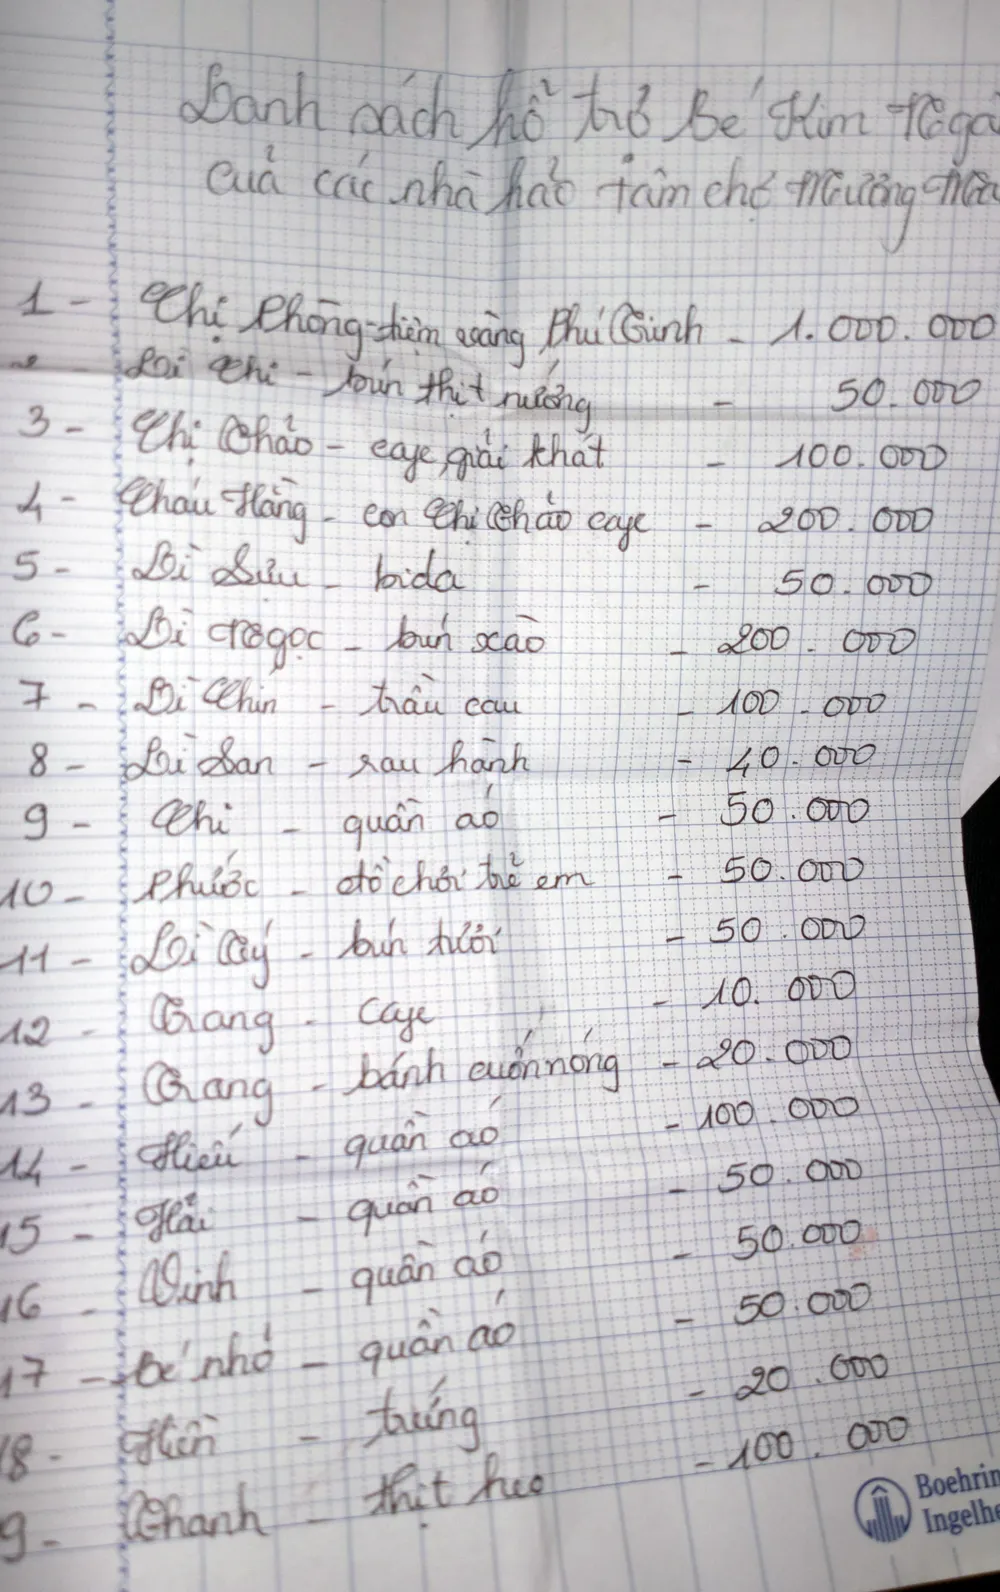 Danh sách hổ trợ Bé Kim Ngâ
của các nhà hảo tâm chợ Mương Mán
1 - Chị Phòng - tiệm vàng Phú Trinh - 1.000.000
2 - Dì Chi - bún thịt nướng - 50.000
3 - Chị Thảo - cafe, giải khát - 100.000
4 - Cháu Hằng - con Chị Thảo cafe - 200.000
5 - Dì Sửu - bida - 50.000
6 - Dì Ngọc - bún xào - 200.000
7 - Dì Chín - trầu cau - 100.000
8 - Dì San - rau hành - 40.000
9 - Chi - quần áo - 50.000
10 - Phước - đồ chơi trẻ em - 50.000
11 - Dì Tý - bún tươi - 50.000
12 - Trang - cafe - 10.000
13 - Trang - bánh cuốn nóng - 20.000
14 - Hiếu - quần áo - 100.000
15 - Hải - quần áo - 50.000
16 - Vinh - quần áo - 50.000
17 - Bé nhỏ - quần áo - 50.000
18 - Hiền - trứng - 20.000
9 - Thanh - thịt heo - 100.000
Boehrin
Ingelhe